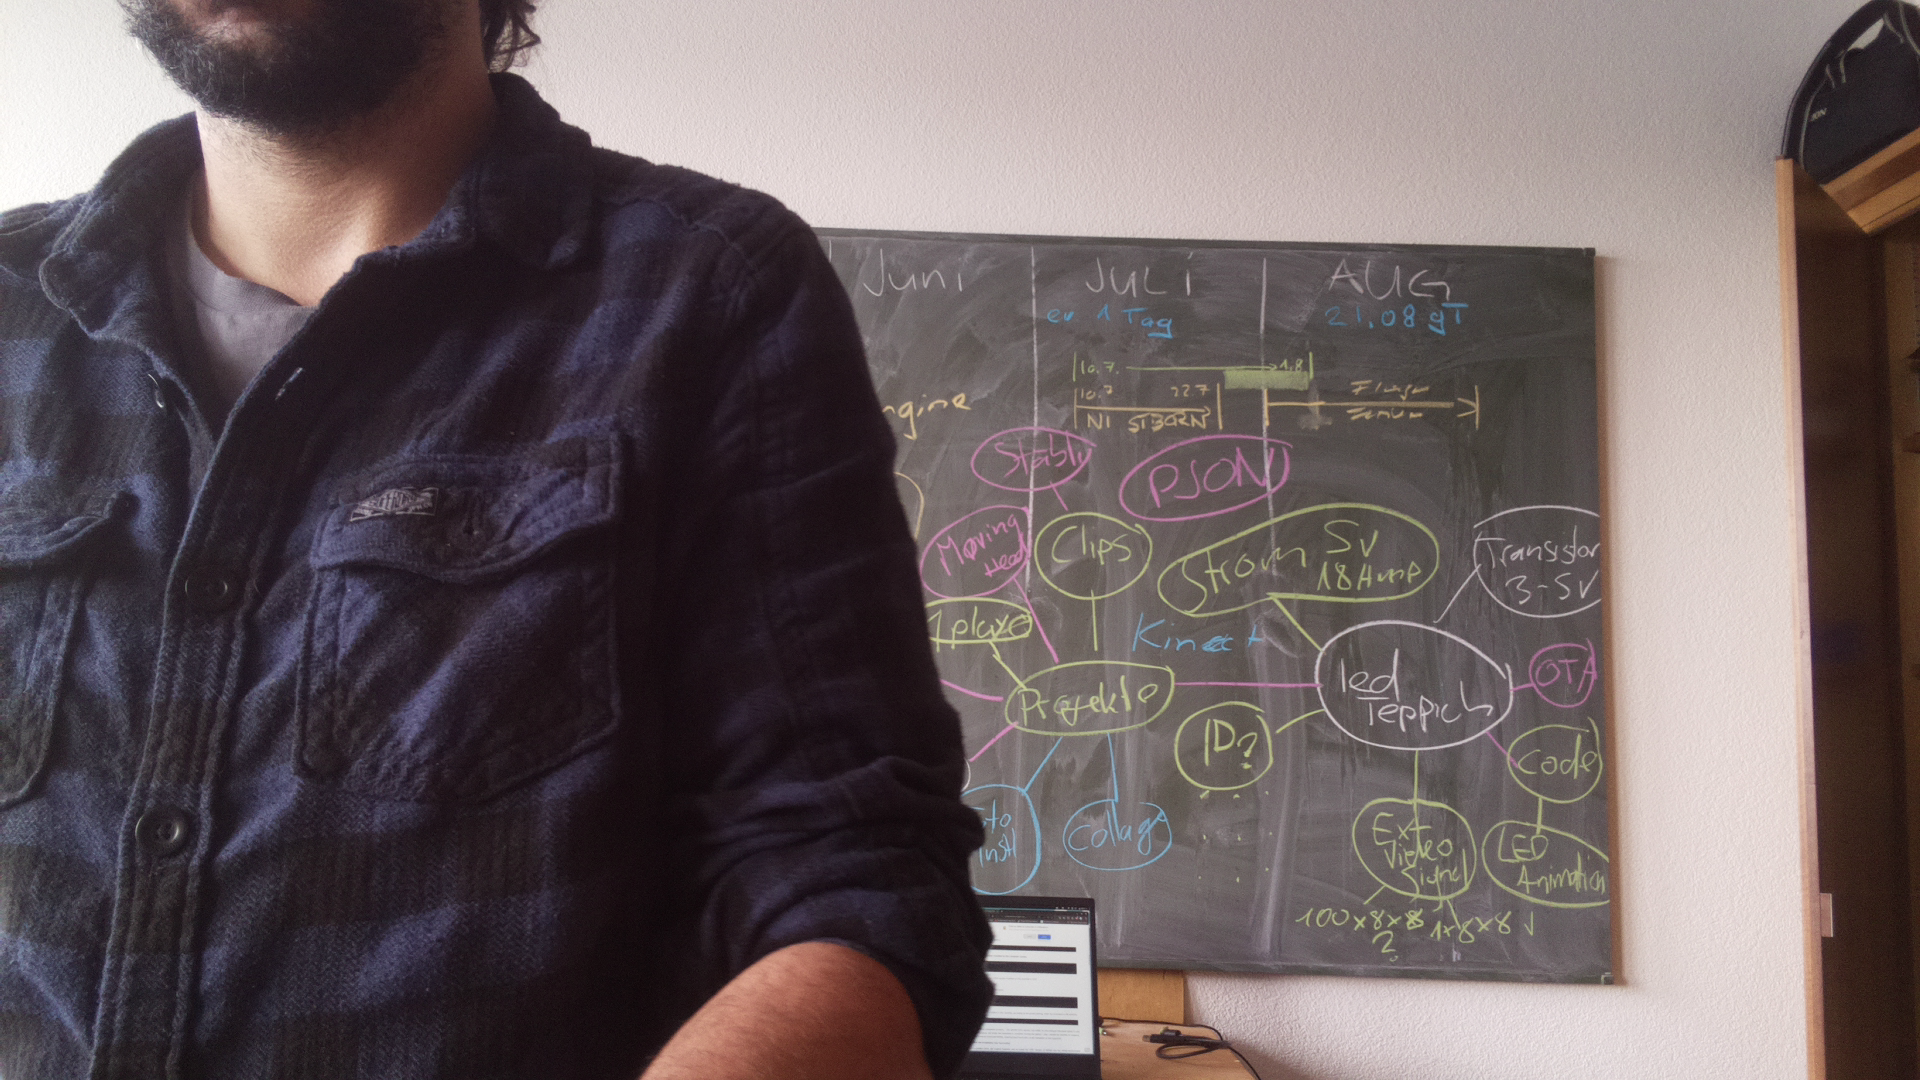 Juni
JULI
AUG
ev. 1 Tag
21.08 gT
10.7. 1.8
10.7 22.7
NI
ngine
Stably
PJON
Moving
Head
Clips
Strom 5v
18 Amp
Transistor
3-5v
1 player
Kinect
Projekte
led
Teppich
OTA
ID?
Code
oto
Inst
Collage
Ext
Video
Signal
LED
Animation
100x8x8 1x8x8 √
?